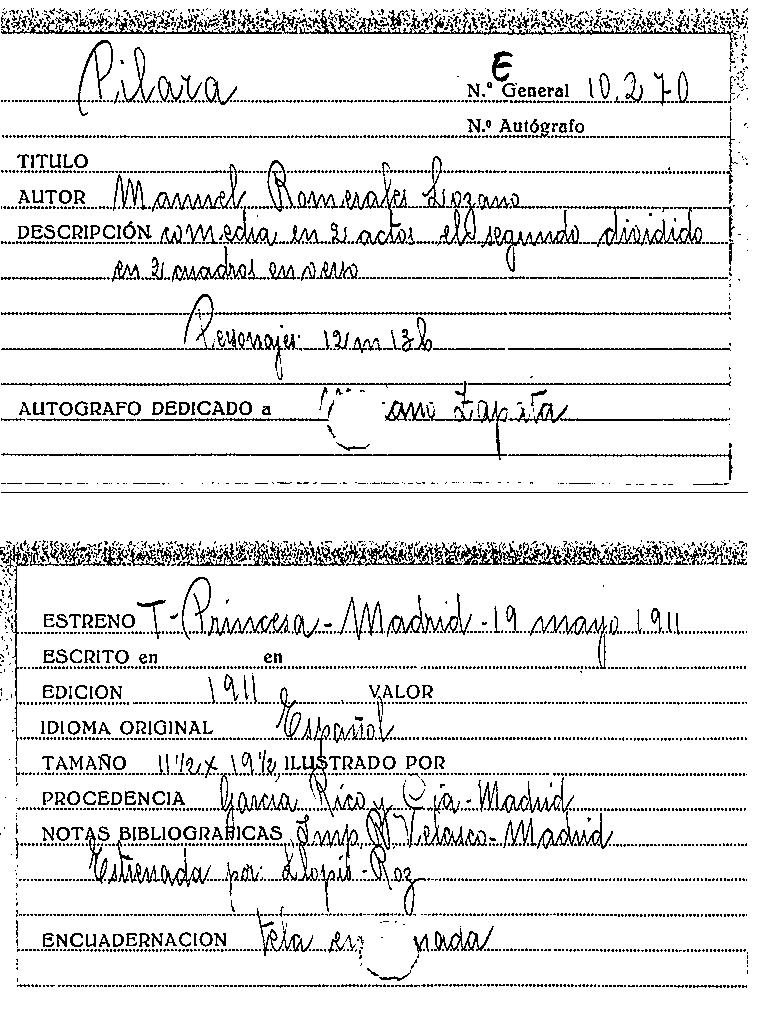 Pilara
E
N.º General 10.270
N.º Autógrafo
TITULO
AUTOR Manuel Lozano
DESCRIPCIÓN comedia en 2 actos el segundo dividido
en 2 cuadros en verso
Personajes: 12 m 13 h
AUTOGRAFO DEDICADO a Zapata
ESTRENO T-Princesa-Madrid-19 mayo 1911
ESCRITO en en
EDICION 1911 VALOR
IDIOMA ORIGINAL Español
TAMAÑO 11½ x 19½ ILUSTRADO POR
PROCEDENCIA Garcia Rico y Cia-Madrid
NOTAS BIBLIOGRAFICAS Imp. R. Velasco-Madrid
Estrenada por: Llopis-Roz
ENCUADERNACION tela